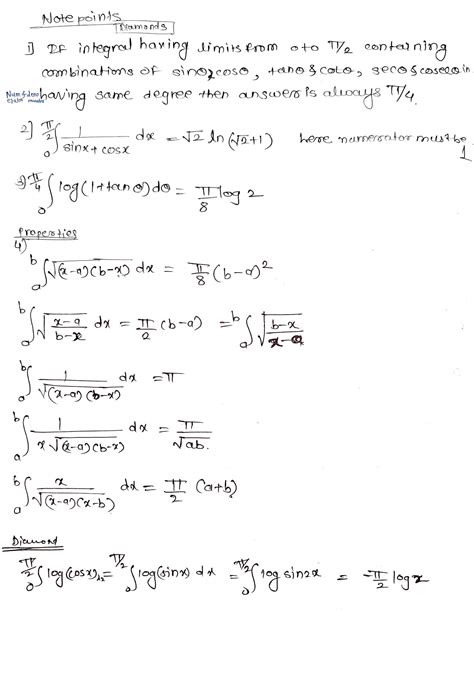 Note points
Diamonds
1) If integral having limits from 0 to π/2 containing
combinations of sinθ & cosθ, tanθ & cotθ, secθ & cosecθ in
Num & deno having same degree then answer is always π/4.
2] ∫₀^(π/2) 1/(sinx + cosx) dx = √2 ln(√2+1) here numerator must be 1
3) ∫₀^(π/4) log(1+tanθ)dθ = π/8 log 2
Properties
4) ∫ₐᵇ √((x-a)(b-x)) dx = π/8 (b-a)²
∫ₐᵇ √((x-a)/(b-x)) dx = π/2 (b-a) = ∫ₐᵇ √((b-x)/(x-a))
∫ₐᵇ 1/√((x-a)(b-x)) dx = π
∫ₐᵇ 1/(x√((x-a)(b-x))) dx = π/√ab.
∫ₐᵇ x/√((x-a)(x-b)) dx = π/2 (a+b)
Diamond
∫₀^(π/2) log(cosx)dx = ∫₀^(π/2) log(sinx) dx = ∫₀^(π/2) log sin2x = -π/2 log2